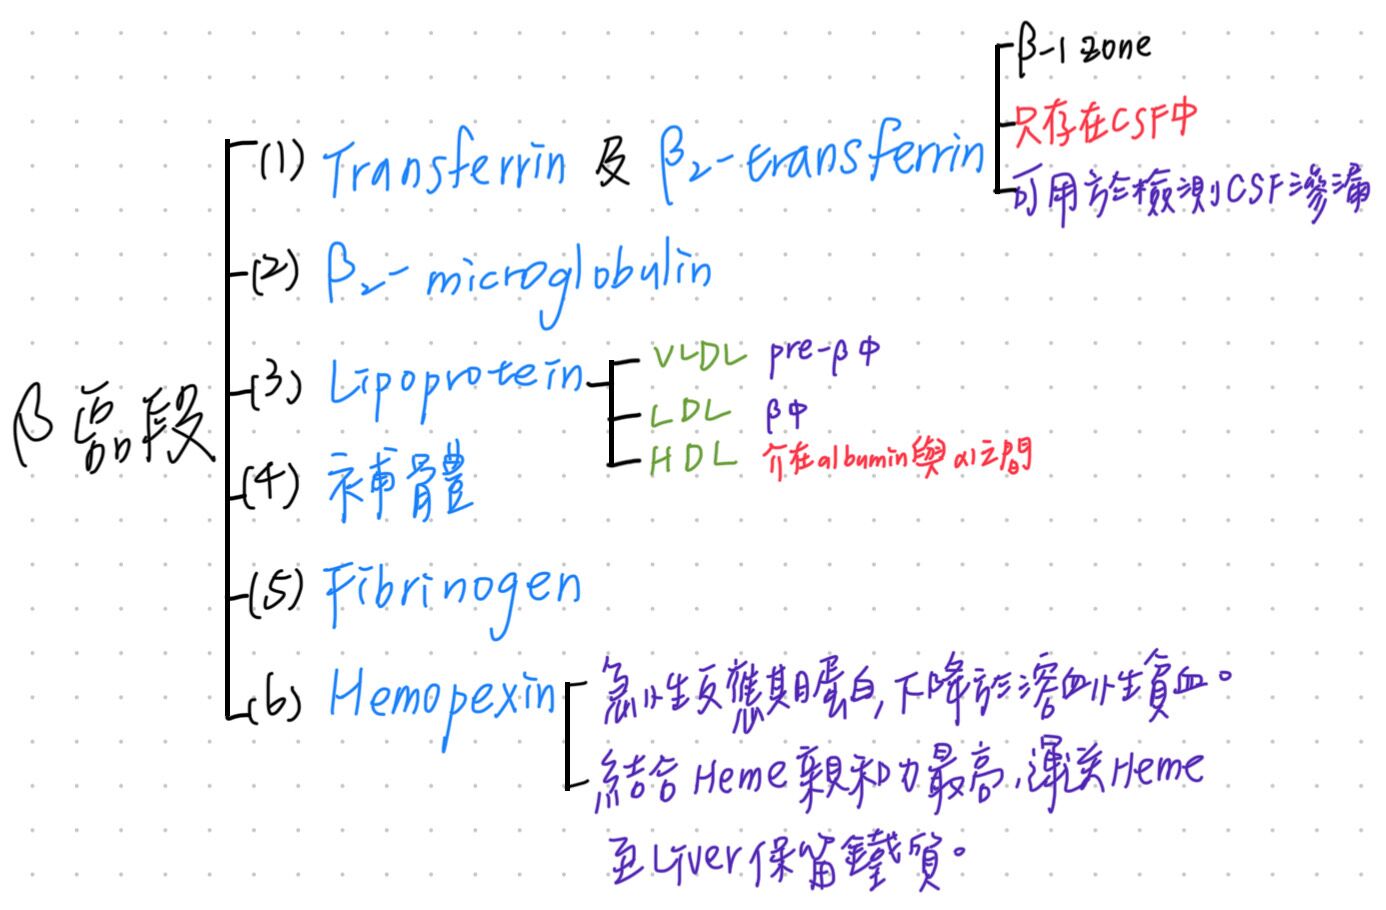 β區段
(1) Transferrin 及 β₂-transferrin
β-1 zone
只存在CSF中
可用於檢測CSF滲漏
(2) β₂-microglobulin
(3) Lipoprotein
VLDL pre-β中
LDL β中
HDL 介在albumin與α1之間
(4) 補體
(5) Fibrinogen
(6) Hemopexin
急性反應期蛋白,下降於溶血性貧血。
結合Heme親和力最高,運送Heme
至Liver保留鐵質。